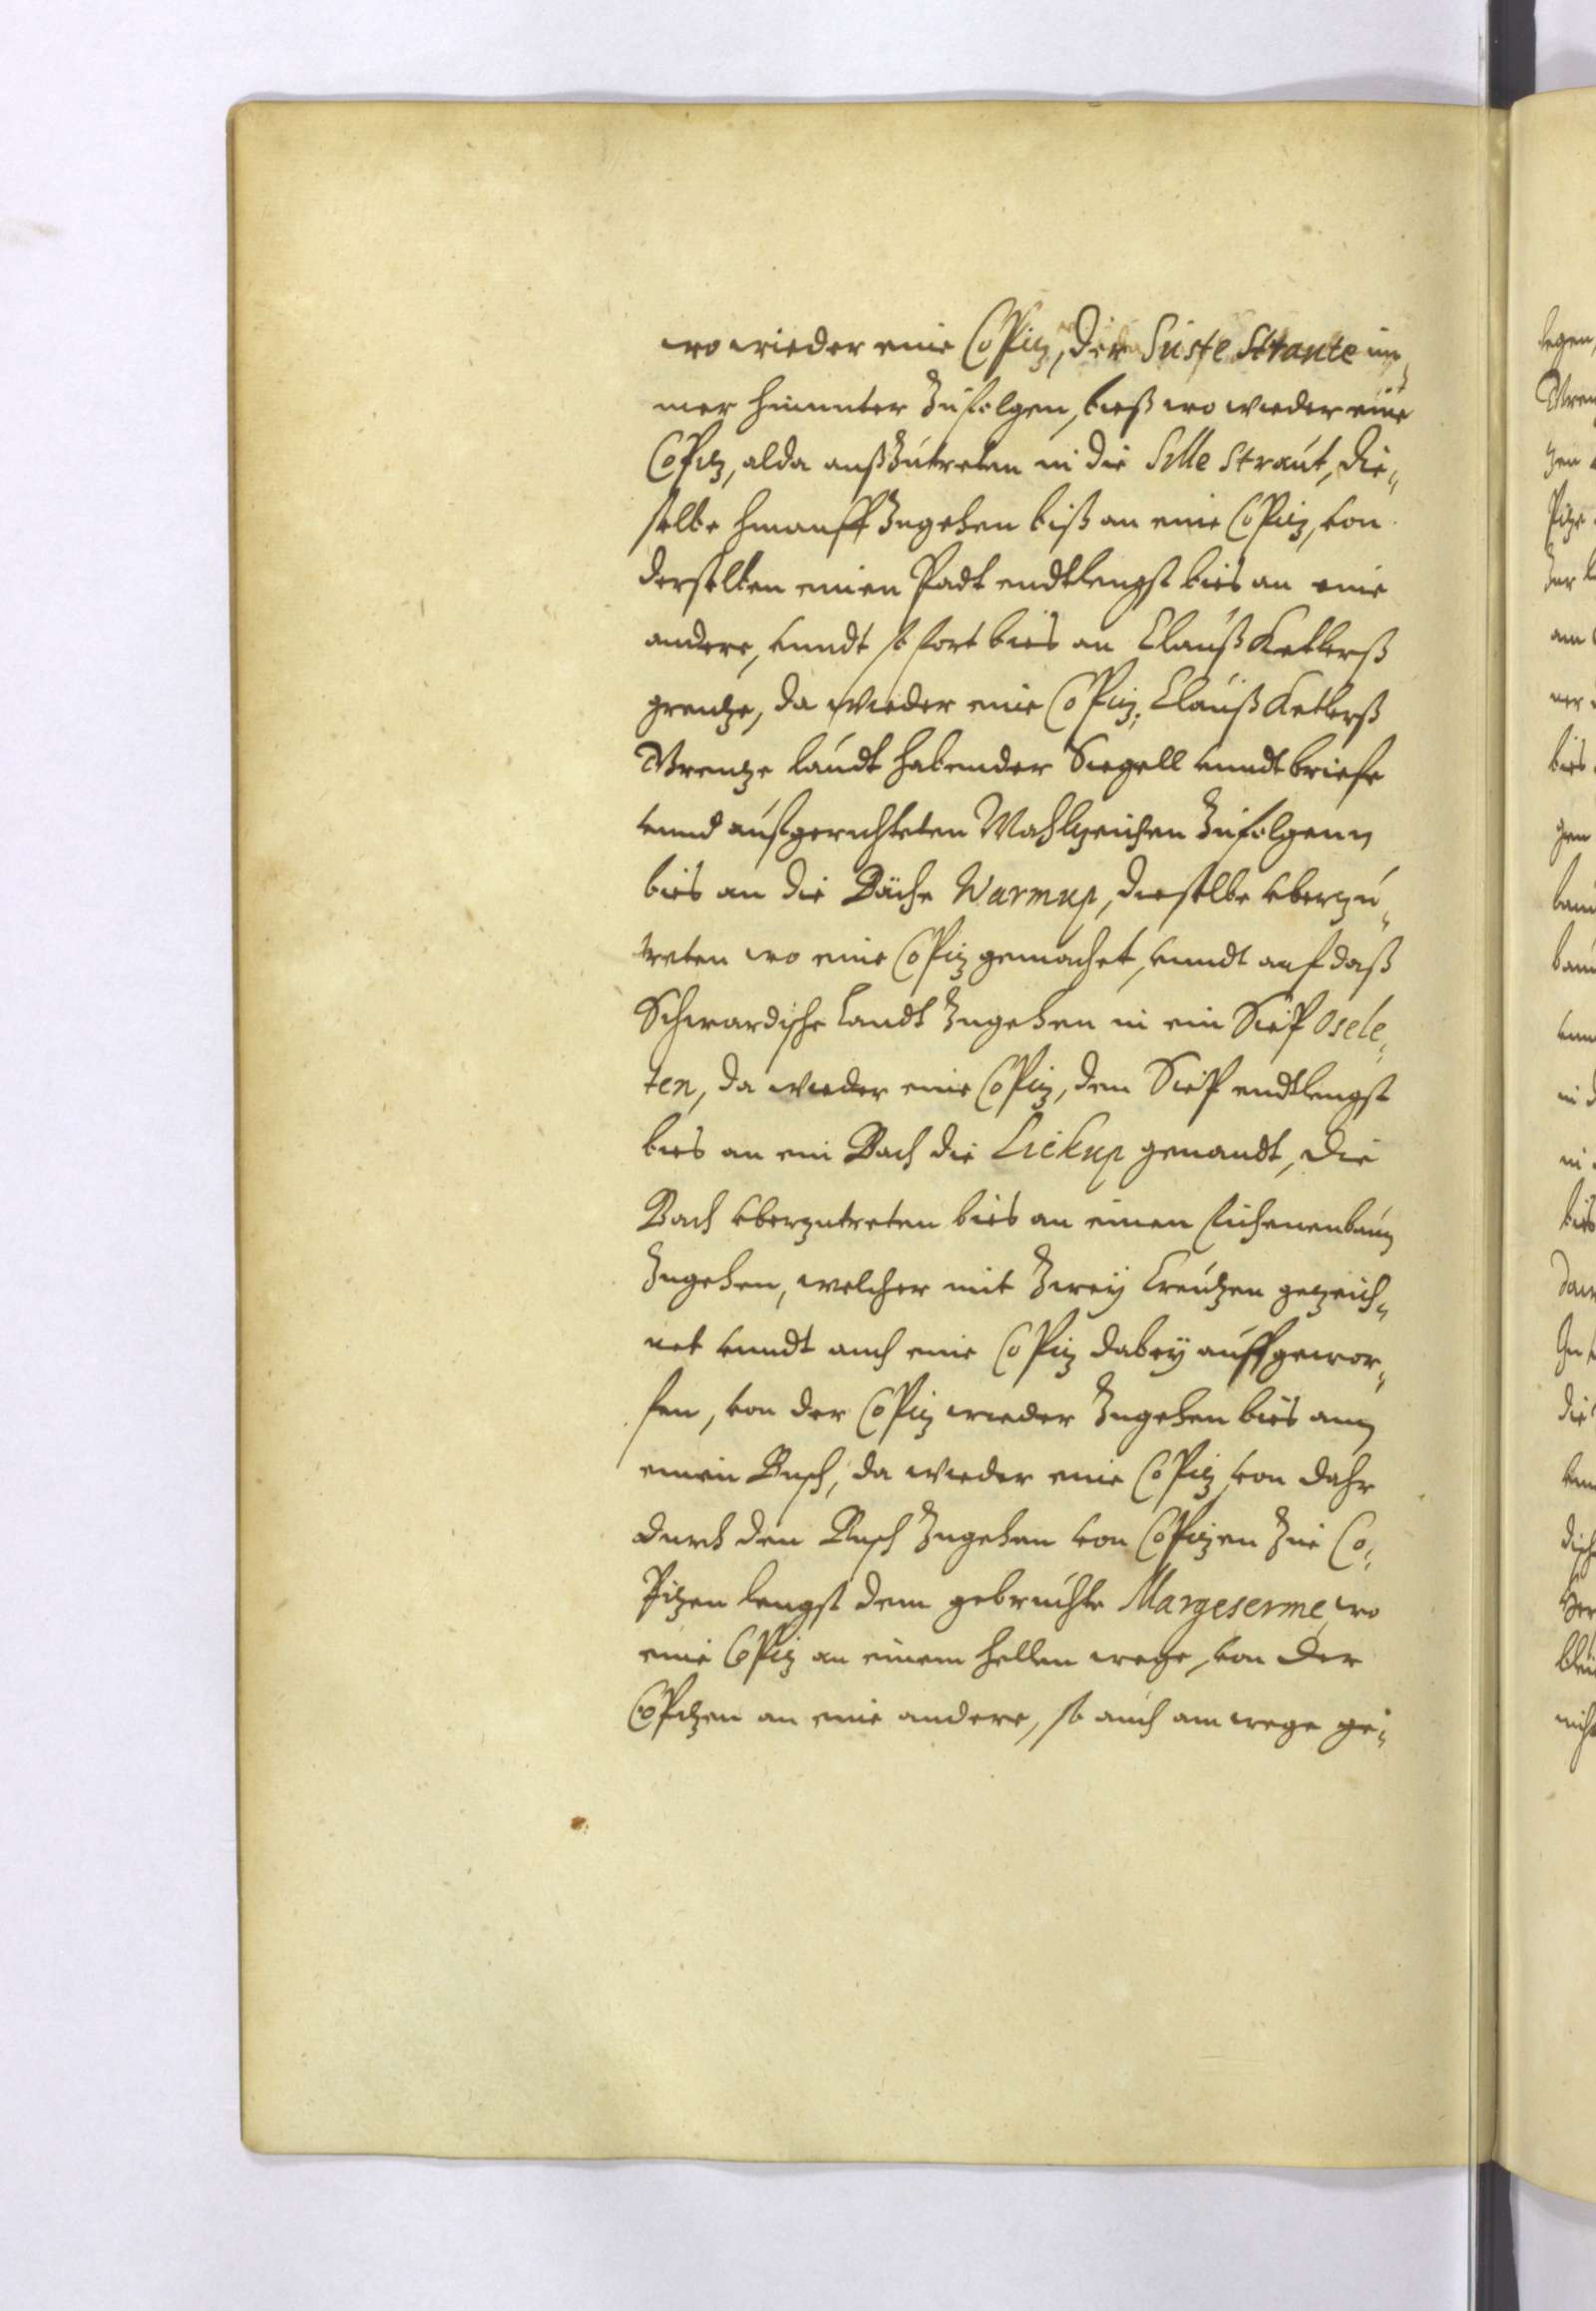 wo wieder eine CoPitz, der Suste Strante im„
mer hinunter Zufolgen, bieß wo wieder eine
CoPitz, alda außZutreten in die Sille Straut, die„
selbe hinauff Zugehen biß an eine CoPitz, von
derselben einen Padt endtlengst bies an eine
andere, vnndt so fort bies an Clauß Ketlerß
grentze, da wieder eine CoPitz, Clauß Ketlerß
Grentze laudt habender Siegell vnndt briefe
vnnd aufgerichteten Mahlzeichen Zufolgenn
bies an die Bäche Warmup, dieselbe vberzu„
treten wo eine CoPitz gemachet, vnndt auf daß
Schwardische Landt Zugehen in ein Siep Osele„
ten, da wieder eine CoPitz, dem Siep endtlengst
bies an ein Bach die Lickup genandt, die
Bach vberzutreten bies an einen Eichenenbaum
Zugehen, welcher mit Zweÿ Creutzen gezeich„
net vnndt auch eine CoPitz dabeÿ auffgewor„
fen, von der CoPitz wieder Zugehen bies ann
einen Busch, da wieder eine CoPitz, von dahr
durch den Busch Zugehen von CoPitzen Zue Co„
Pitzen lengst dem gebrüchte Margeserme, wo
eine CoPitz an einem hellen wege, von der
CoPitzen an eine andere, so auch am wege ge„